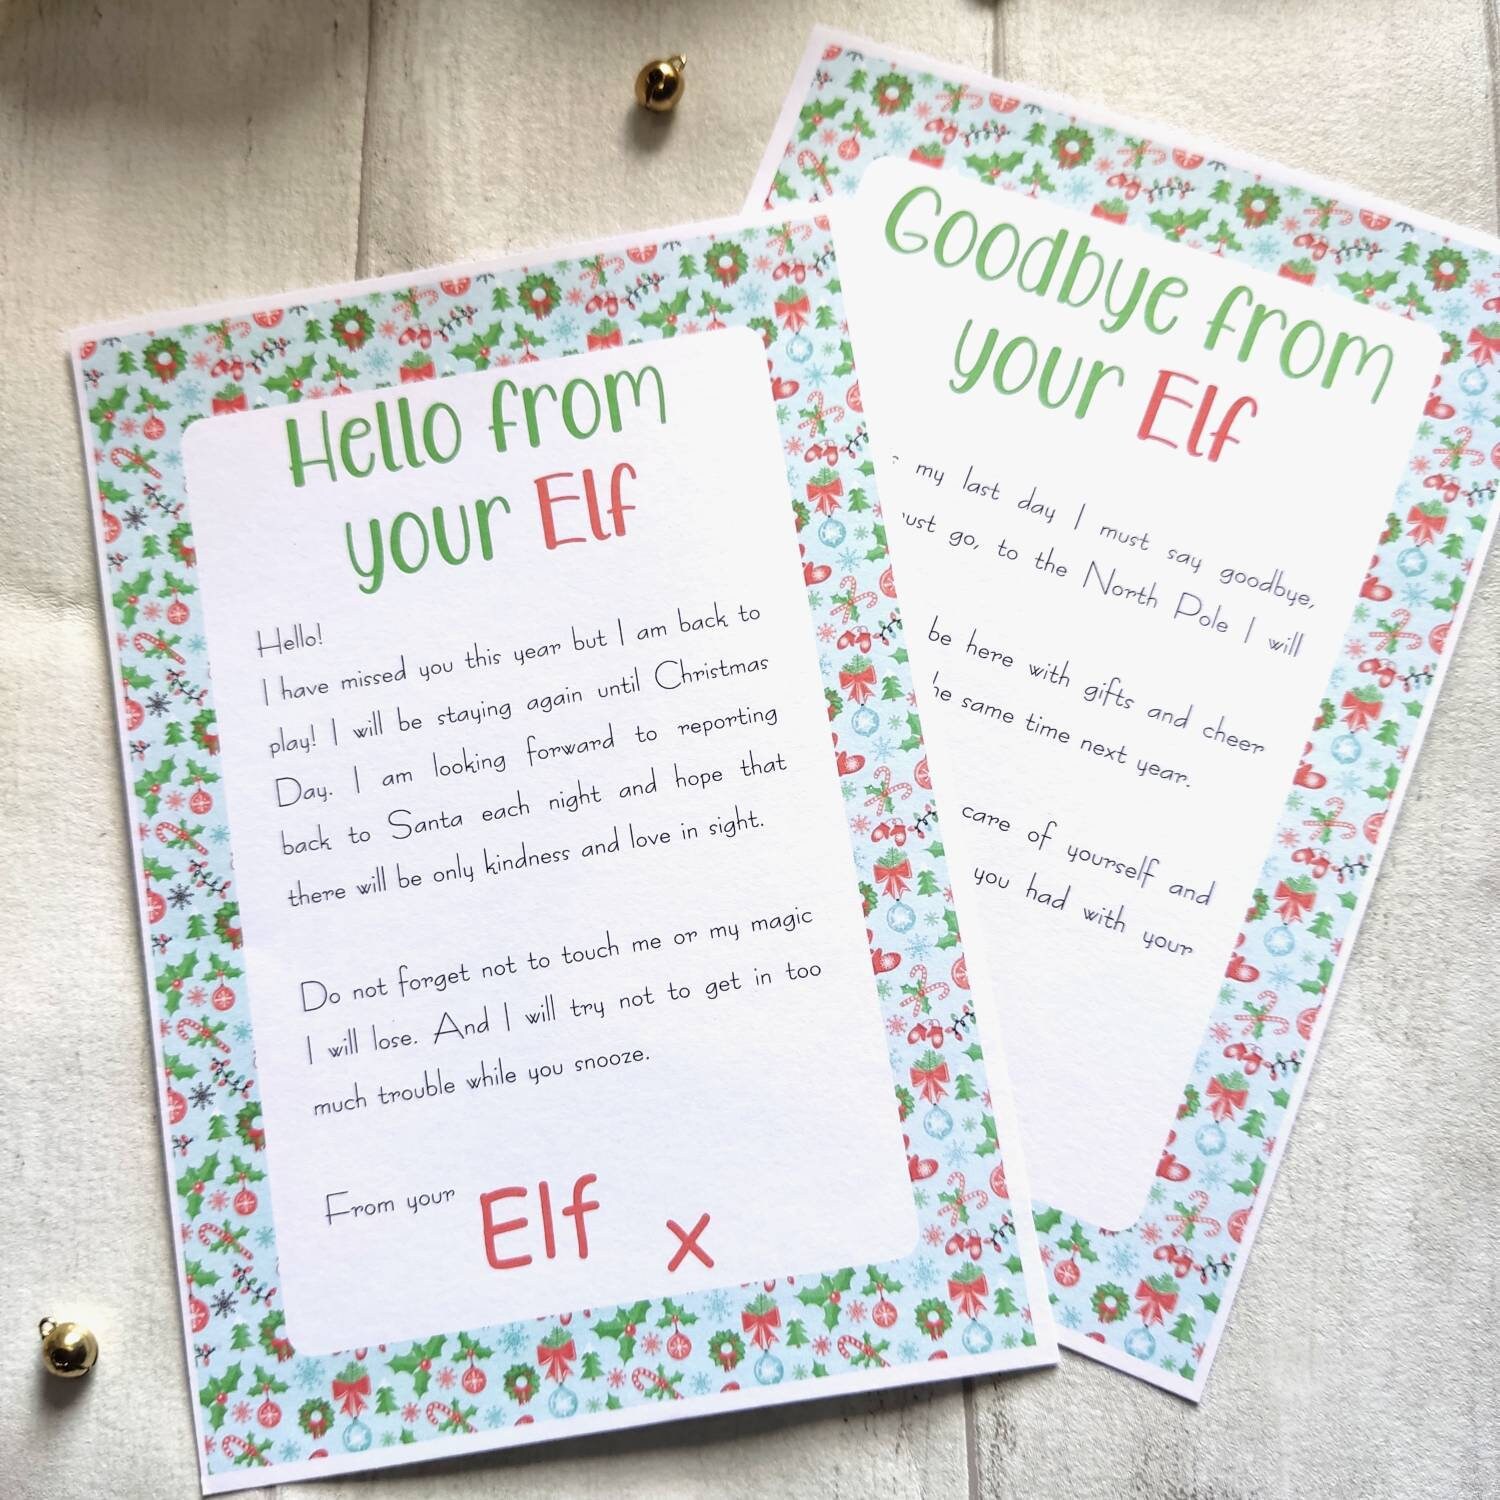 Hello from
your Elf
Hello!
I have missed you this year but I am back to
play! I will be staying again until Christmas
Day. I am looking forward to reporting
back to Santa each night and hope that
there will be only kindness and love in sight.
Do not forget not to touch me or my magic
I will lose. And I will try not to get in too
much trouble while you snooze.
From your Elf x
Goodbye from
your Elf
my last day I must say goodbye,
go, to the North Pole I will
be here with gifts and cheer
same time next year.
care of yourself and
you had with your